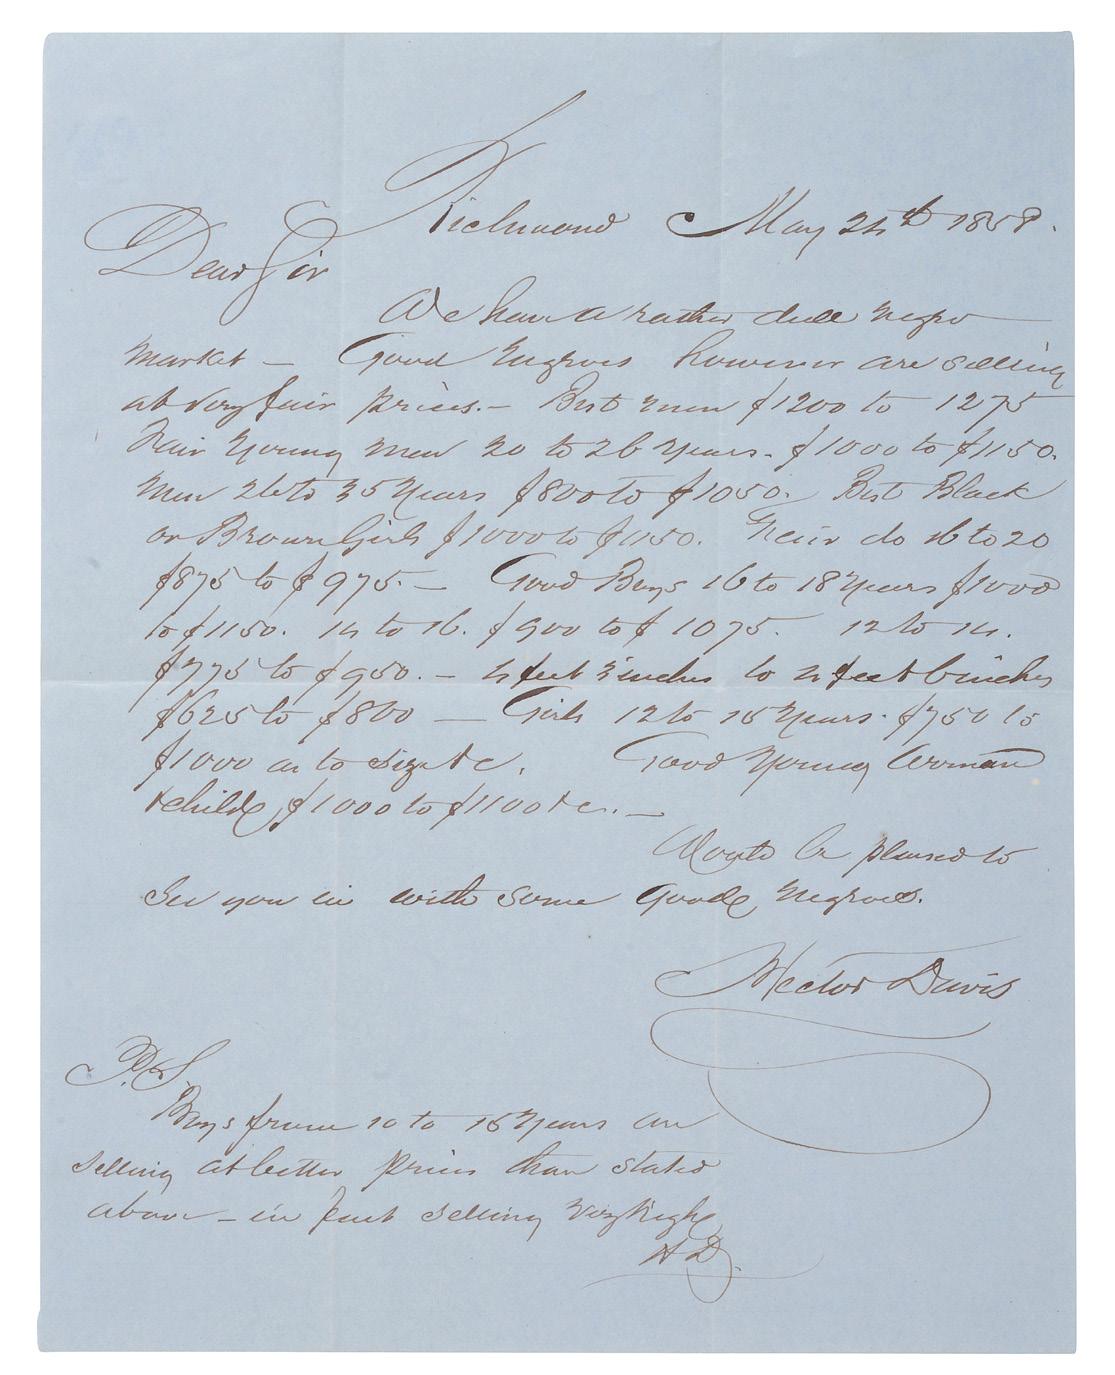 Richmond May 24th 1858.
Dear Sir
We have a rather dull negro
market — Good Negroes however are selling
at very fair prices. — Best men $1200 to 1275
Fair Young men 20 to 26 Years. $1000 to $1150.
Men 26 to 35 Years $800 to $1050. Best Black
or Brown Girls $1000 to $1150. Fair do 16 to 20
$875 to $975. — Good Boys 16 to 18 Years $1000
to $1150. 14 to 16. $900 to $1075. 12 to 14.
$775 to $950. — 4 feet 3 inches to 4 feet 6 inches
$625 to $800 — Girls 12 to 15 Years. $750 to
$1000 as to size &c. Good Young Woman
& child $1000 to $1100 &c. —
Would be pleased to
See you in with some good negroes.
Hector Davis
P.S.
Boys from 10 to 15 Years are
selling at better prices than stated
above — in fact selling very high
H D.